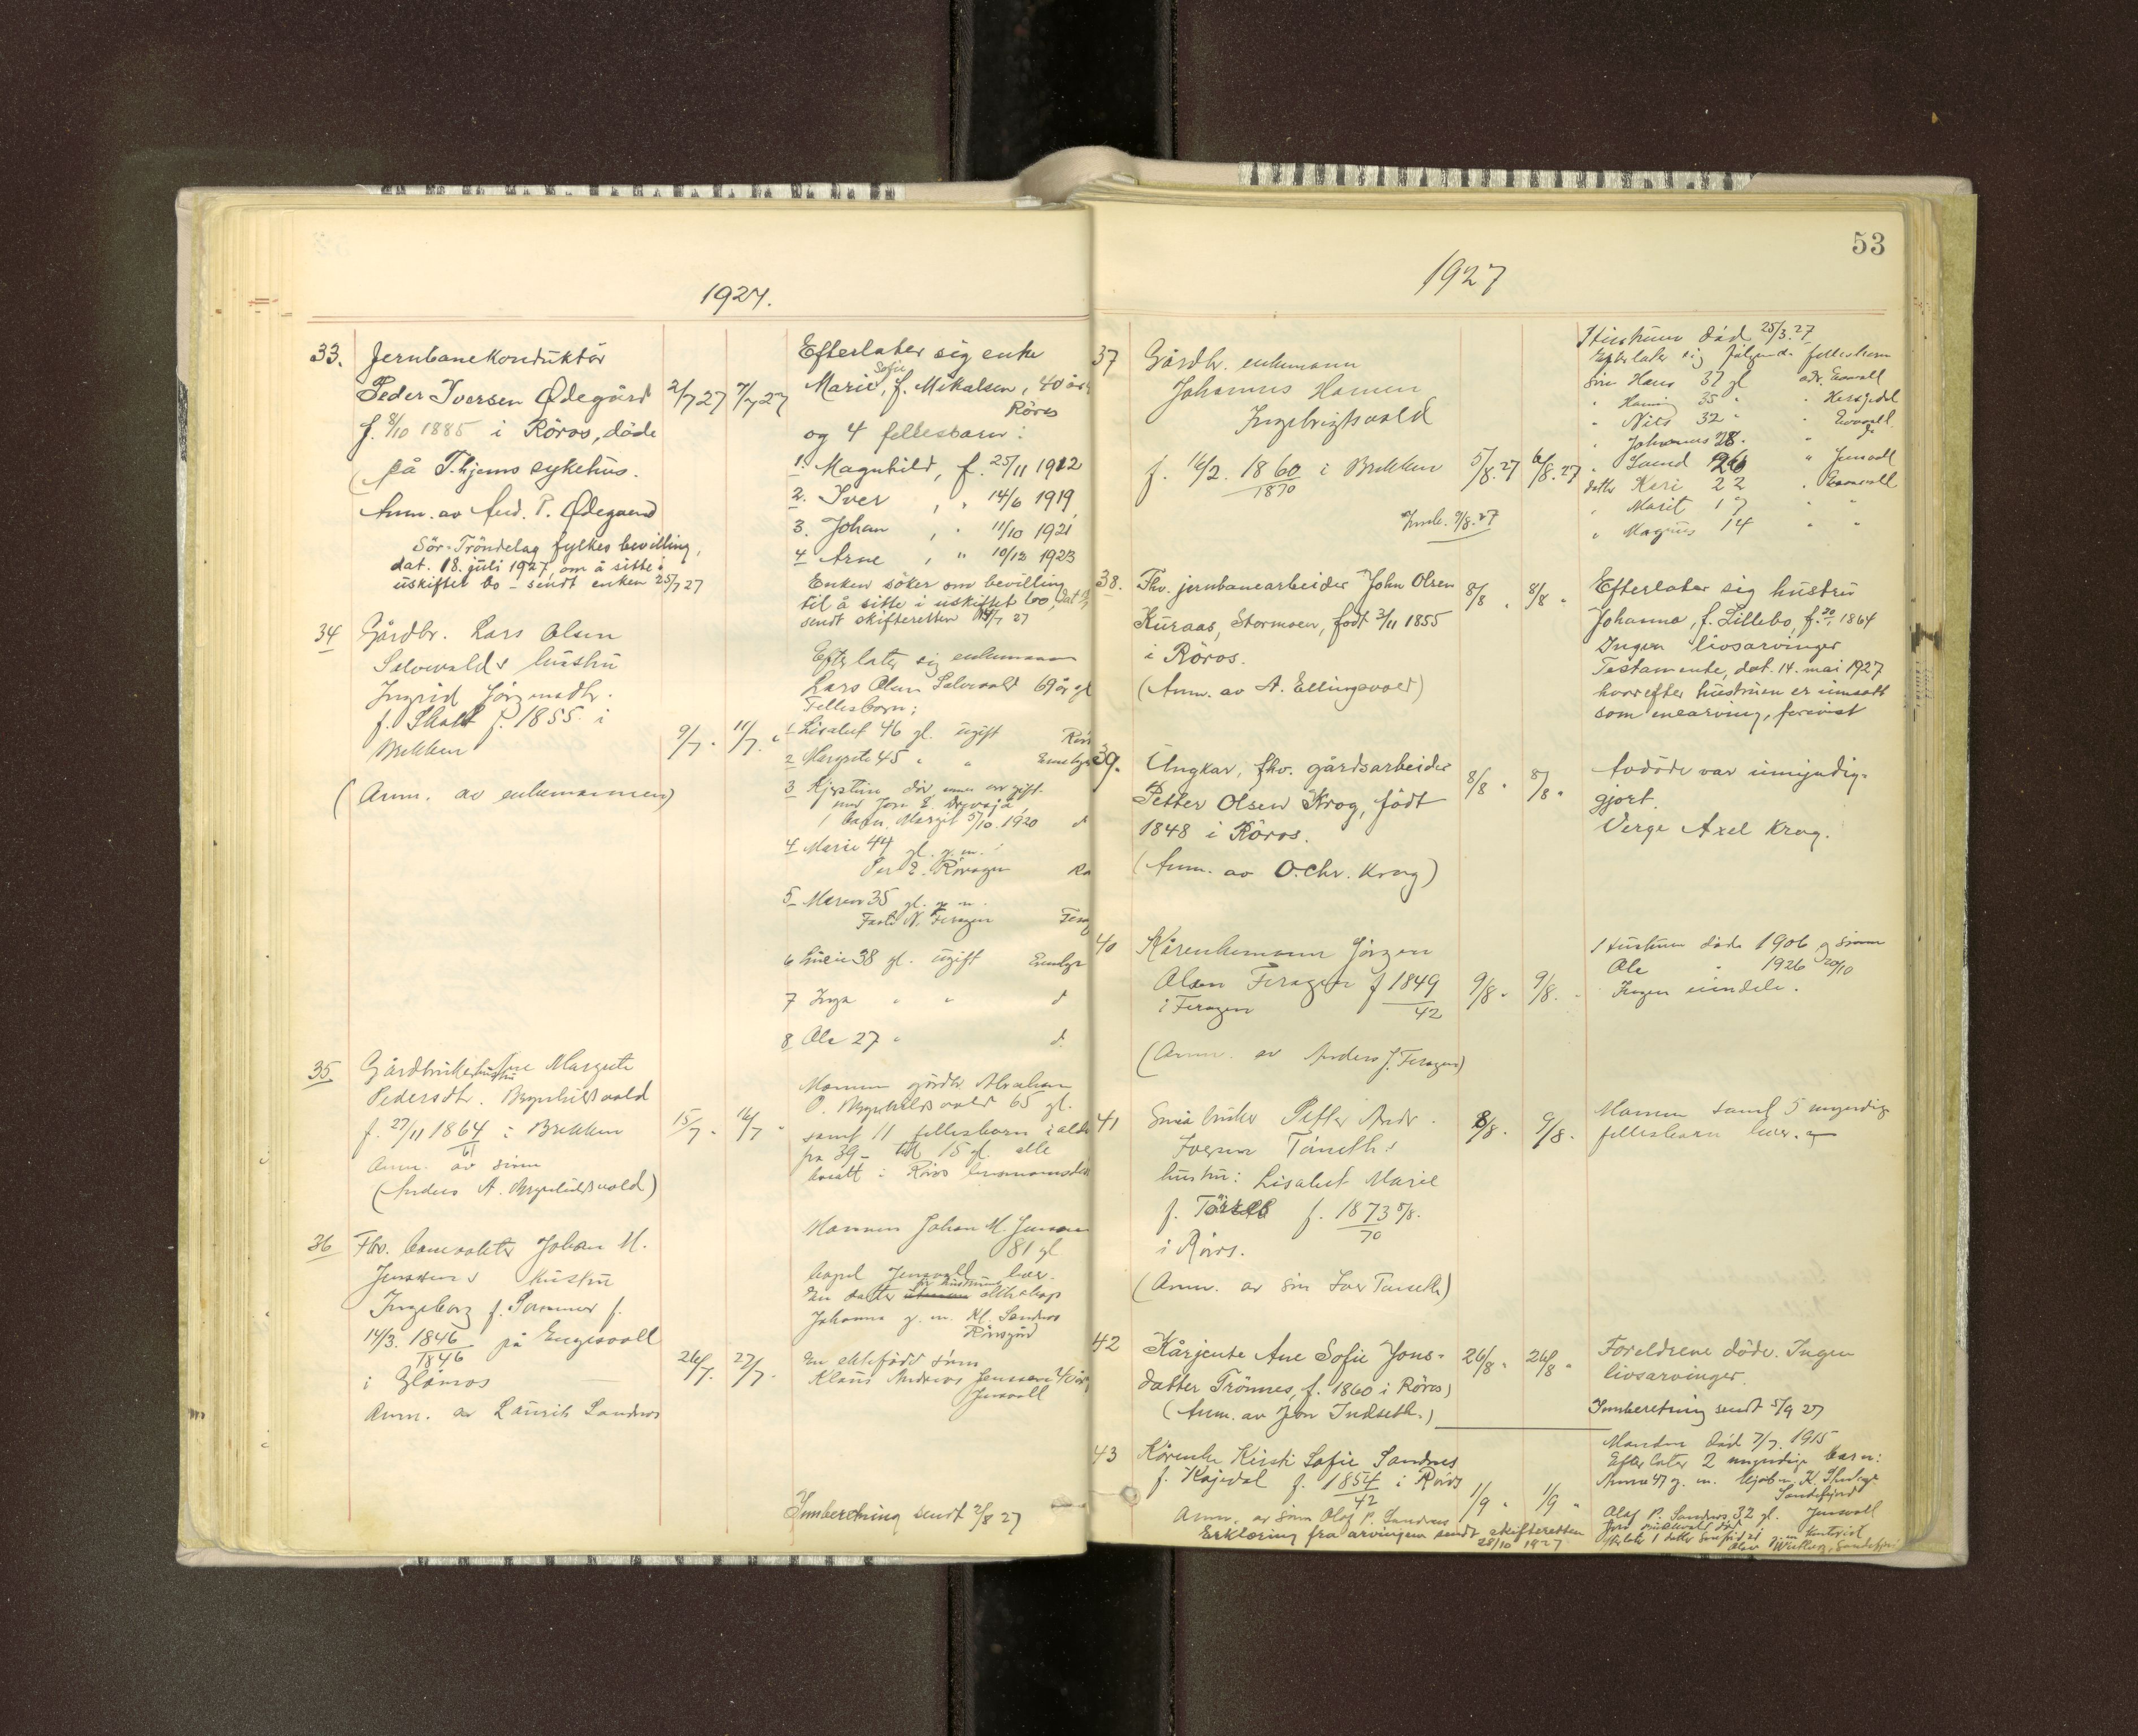 1927.
33. Jernbanekonduktör
Peder Iversen Ødegård 2/7 27 7/7 27
f. 8/10 1885 i Röros, döde
(på T.hjems sykehus.
Anm. av And. P. Ødegaard
Sör-Tröndelag fylkes bevilling,
dat. 18. juli 1927, om å sitte i
uskiftet bo - sendt enken 25/7 27
Efterlater sig enke
Sofie
Marie, f. Mikalsen, 40 år
Röros
og 4 fellesbarn:
1. Magnhild, f. 25/11 1912
2. Iver , " 14/6 1919
3. Johan , " 11/10 1921
4 Arne , " 10/12 1923
Enken söker om bevilling
til å sitte i uskiftet bo, dat
sendt skifteretten 27
34 Gårdbr. Lars Olsen
Selvolds hustru
Ingrid Jörgensdtr.
f. Skott f. 1855 i
Brekken 9/7 " 11/7 "
(Anm. av enkemannen)
Efterlater sig enkemann
Lars Olsen 69 år gl
Fellesborn:
1 Lisabet 46 gl. ugift
2 Margrete 45 " "
3 Kjerstine död, som var gift
med Jon E.
1 barn, Margit 5/10 1920 d
4 Marie 44 gl. g. m.
Per E. Rövagen
5 Maren 35 gl. g. m.
N. Feragen
6 38 gl. ugift
7 Inga " " d
8 Ole 27 " d.
35 Gårdbruker Ane Margrete
hustru
Pedersdtr. Brynhildsvold
f. 27/11 1864 i Brekken 15/7 " 16/7 "
61
Anm. av sönn
(Anders A. Brynhildsvold)
Mannen gårdbr. Abraham
O. Brynhildsvold 65 gl.
samt 11 fellesborn i alder
fra 39 - til 15 gl. alle
bosatt i Röros
36 Fhv. banevokter Johan M.
Jenssens hustru
Ingeborg f. Sommer f.
14/3. 1846 på Engesvoll
1846
i Glåmos 26/7. 27/7.
Anm. av Laurits Sandnes
Mannen Johan M. Jenssen
81 gl
lever.
før hustruens
En datter ekteskap
Johanna g. m. Kl. Sandnes
Rörosgård
En ektefödt sönn
Klaus Andreas Jenssen 40 år
Jensvoll
Innberetning sendt 2/8 27
53
1927
37 Gårdbr. enkemann
Johannes Hansen
Ingebrigtsvold
f. 16/2. 1860 i Brekken 5/8. 27 6/8. 27
1870
Innb. 9/8. 27
Hustruen död 25/3. 27
Efterlater sig følgende fellesbarn
sön Hans 37 gl
" 35 "
" Nils 32 "
" Johannes 28.
" 26
datter Kari 22
" Marit 17
" Magnus 14 " "
38. Fhv. jernbanearbeider John Olsen 8/8 " 8/8 "
Kuraas, Stormoen, født 3/11 1855
i Röros.
(Anm. av A. Ellingsvold)
Efterlater sig hustru
Johanna, f. Lillebo, f. 1864
Ingen livsarvinger
Testamente, dat. 14. mai 1927
hvorefter hustruen er innsatt
som enearving, forevist
39. Ungkar, fhv. gårdsarbeider 8/8 " 8/8 "
Petter Olsen Krog, född
1848 i Röros.
(Anm. av O.Chr. Krog)
Avdöde var umyndig-
gjort.
Verge Axel Krog.
40 Kårenkemann Jörgen
Olsen Feragen f 1849 9/8 " 9/8. "
i Feragen 42
(Anm. av Anders J. Feragen)
Hustruen döde 1906 og sönnen
Ole " 1926 20/10
Ingen midler.
41 Småbruker Petter Andr. 8/8. 9/8.
Iversen Tamneth's
hustru: Lisabet Marie
f. f. 1873 5/8.
70
i Röros.
(Anm. av sön Iver Tamneth)
Mannen samt 5 myndige
fellesbarn lever.
42 Kårjente Ane Sofie Jons- 26/8 " 26/8 "
datter Trönnes, f. 1860 i Röros)
(Anm. av Jon Indseth.)
Foreldrene döde. Ingen
livsarvinger.
Innberetning sendt 5/9 27
43 Kårenke Kirsti Sofie Sandnes
f. Kojedal f. 1854 i Röros 1/9 " 1/9 "
42
Anm. av sönn Olaf P. Sandnes
Erklæring fra arvingene sendt skifteretten
28/10 1927
Mannen död 7/7. 1915
Efterlater 2 myndige barn:
Anna 47 g. m.
Sandefjord
Olaf P. Sandnes 32 gl. Jensvoll